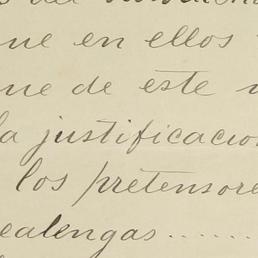 ne en ellos
ne de este
la justificacio
los pretensore
ealengas.......